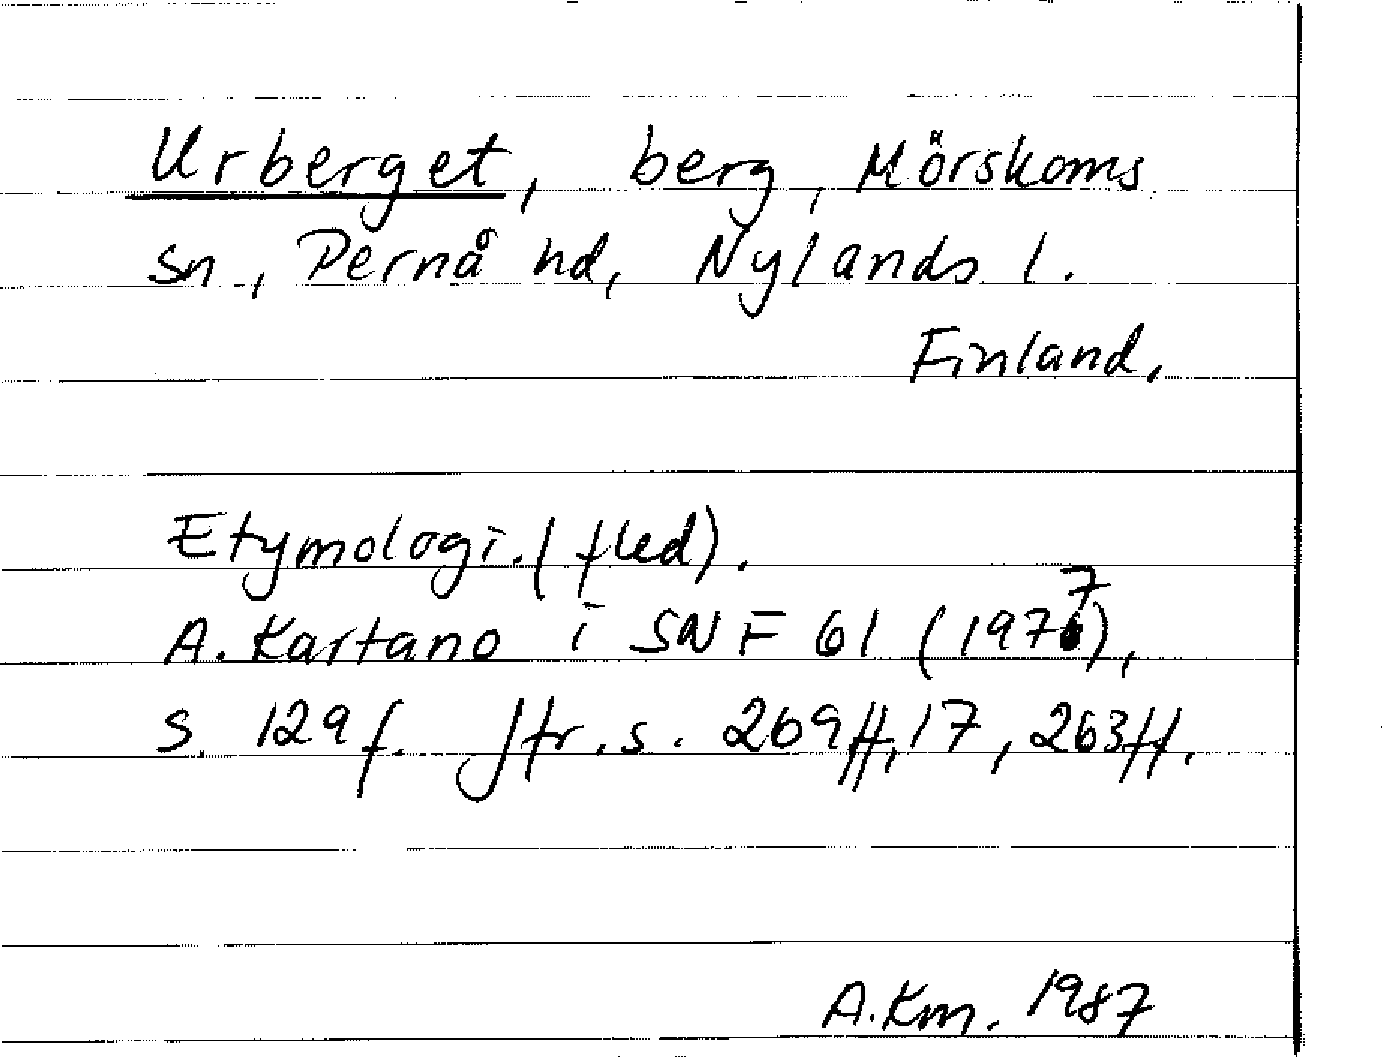 Urberget, berg, Mörskoms
sn., Pernå hd, Nylands l.
Finland.
Etymologi. (fled).
A. Kartano i SNF 61 (1977),
s. 129 f. Jfr. s. 269 ff, 17, 263 ff.
A.Km. 1987